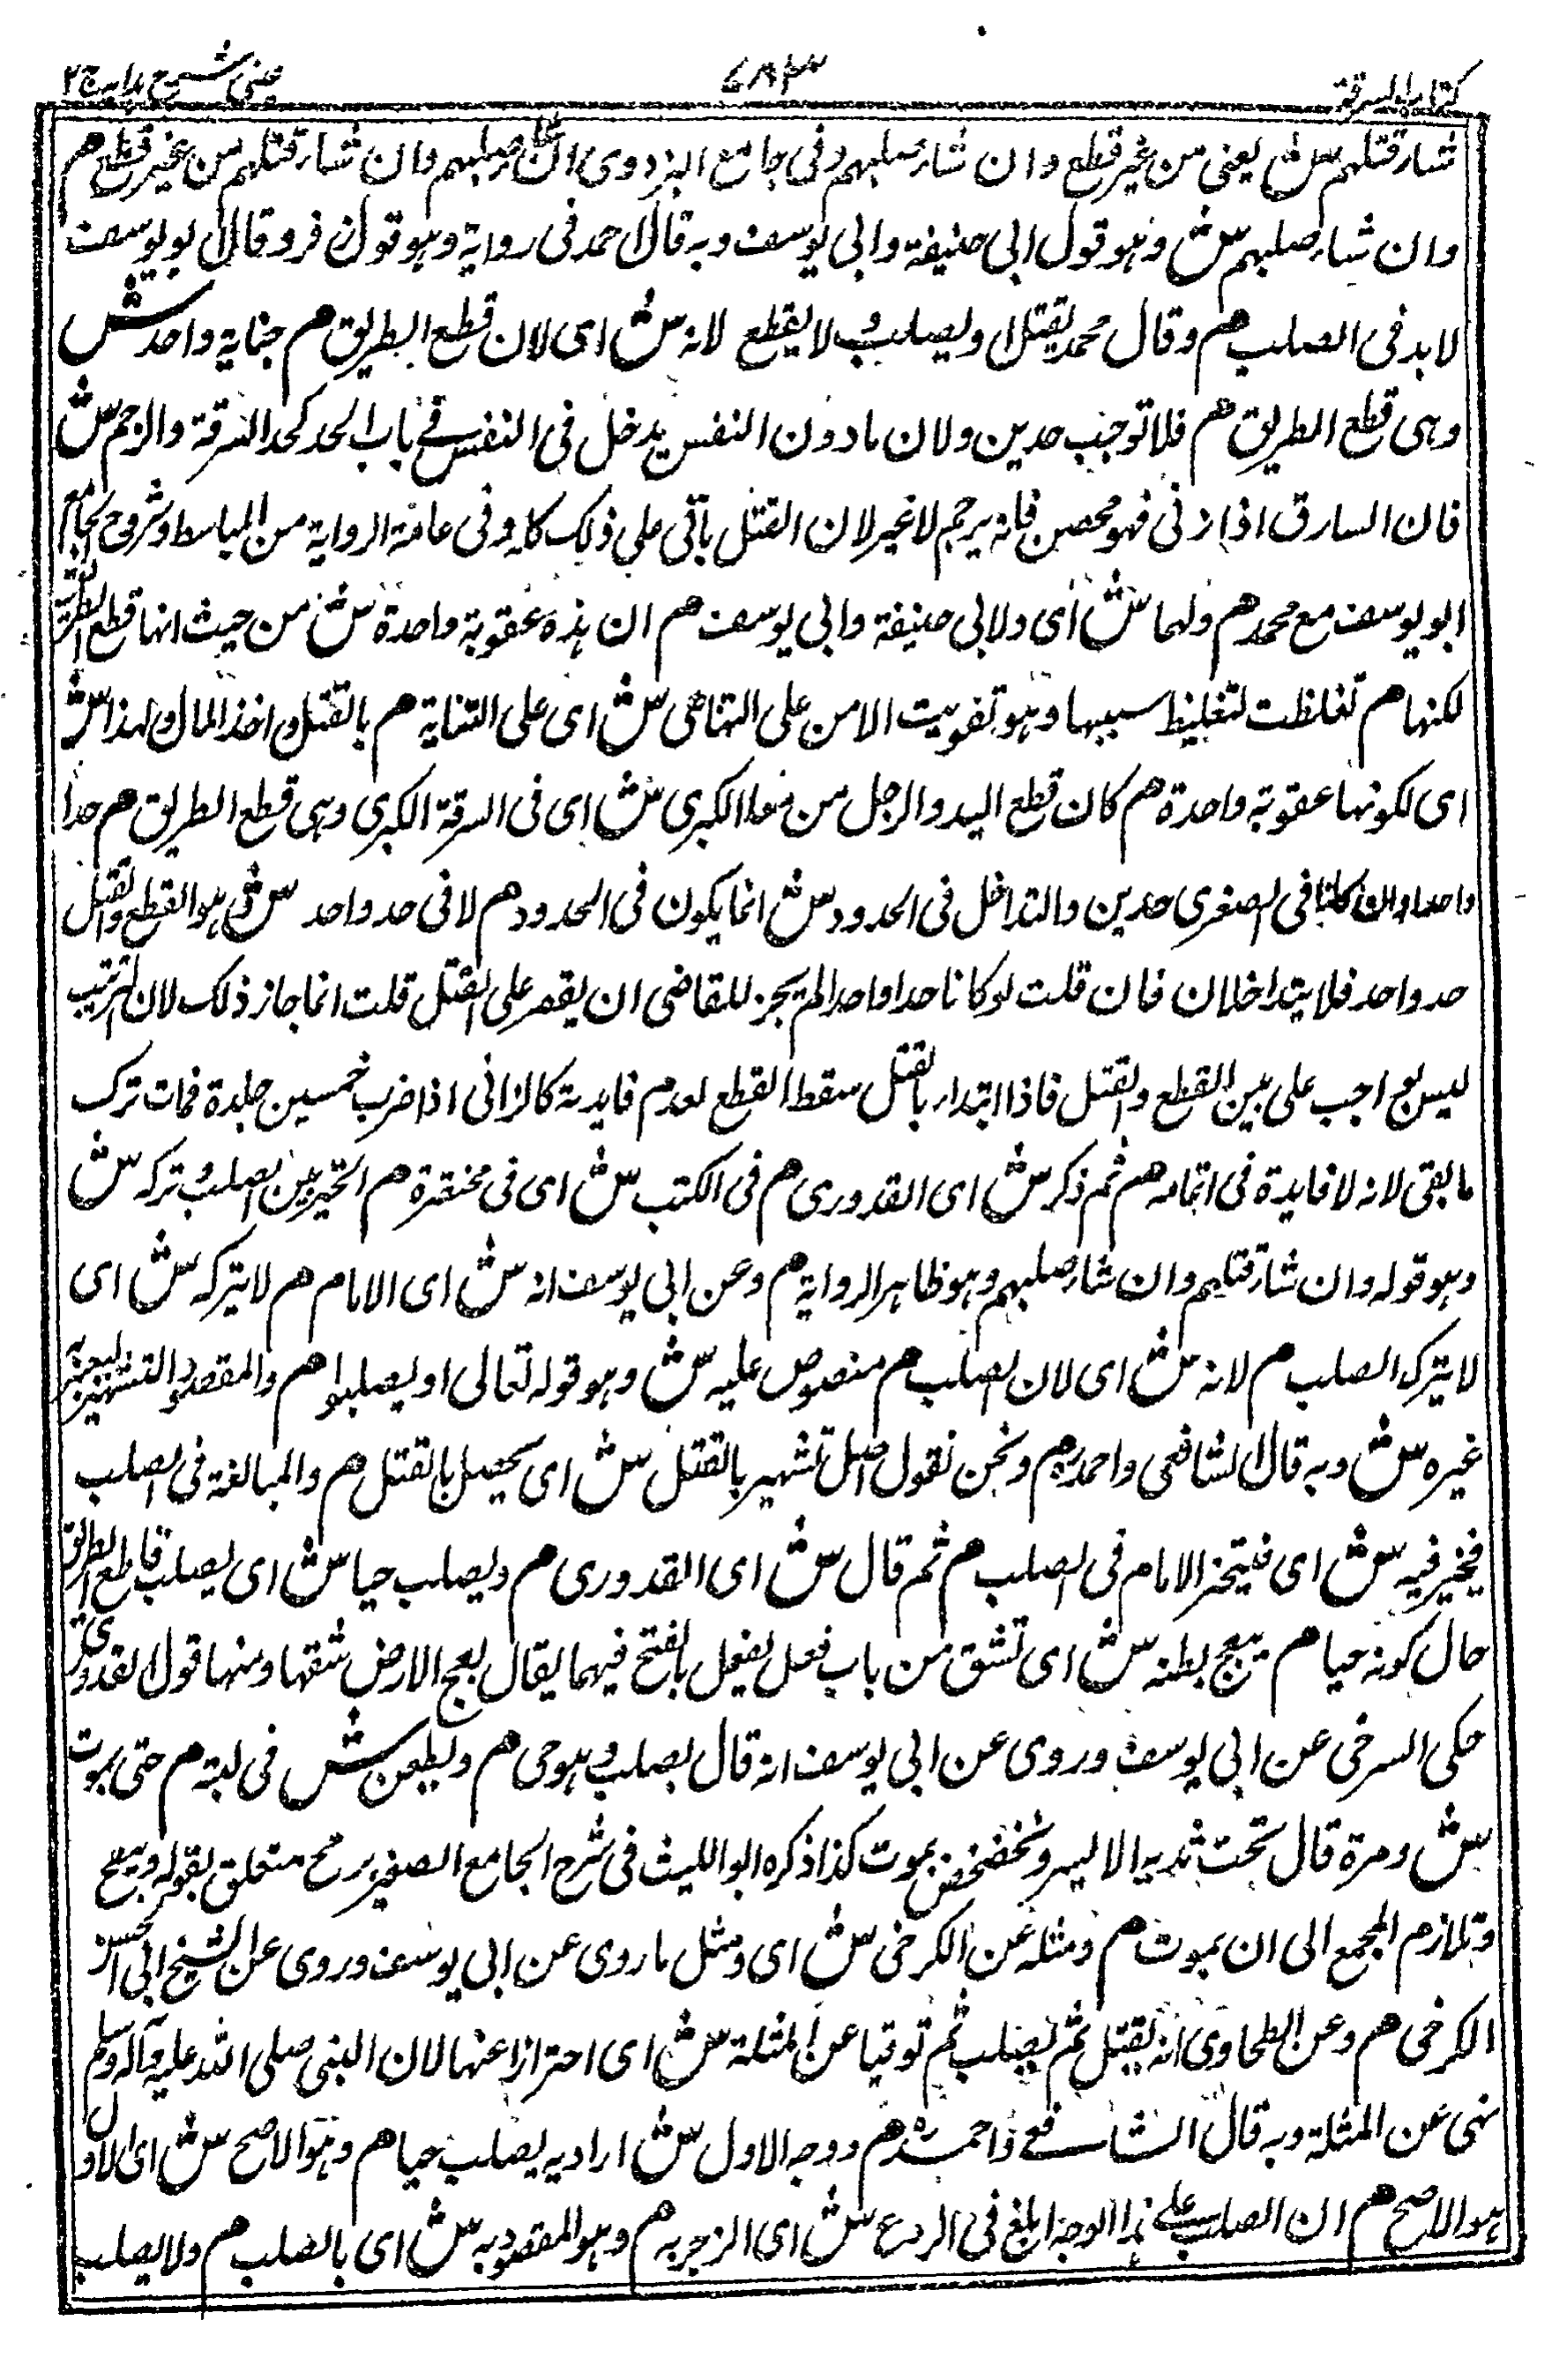 كتاب السرقة
٦٨٣
عينى شرح هدايه ج ٢
شاء قتلهم ش يعنى من غير قطع وان شاء صلبهم وفى جامع البزدوى ان شاء صلبهم وان شاء قتلهم من غير قطع م
وان شاء صلبهم ش وهو قول ابى حنيفة وابى يوسف وبه قال احمد فى رواية وهو قول زفر وقال ابو يوسف
لابد فى الصلب م وقال محمد يقتل او يصلب ولا يقطع لانه ش اى لان قطع الطريق م جناية واحدة ش
وهى قطع الطريق م فلا توجب حدين ولان ما دون النفس يدخل فى النفس فى باب الحد كحد السرقة والرجم ش
فان السارق اذا زنى فهو محصن فانه يرجم لا غير لان القتل ياتى على ذلك كله وفى عامة الرواية من المباسط وشروح الجامع
ابو يوسف مع محمد م ولهما ش اى ولابى حنيفة وابى يوسف م ان هذه عقوبة واحدة ش من حيث انها قطع الطريق
لكنها م تغلظت لتغليظ سببها وهو تفويت الامن على التناهى ش اى على النهاية م بالقتل واخذ المال ولهذا ش
اى لكونها عقوبة واحدة م كان قطع اليد والرجل من معا الكبرى ش اى فى السرقة الكبرى وهى قطع الطريق م حدا
واحدا وان كانا فى الصغرى حدين والتداخل فى الحدود ش انما يكون فى الحدود م لا فى حد واحد ش وهو القطع والقتل
حد واحد فلا يتداخلان فان قلت لو كانا حدا واحدا لم يجز للقاضى ان يقصر على القتل قلت انما جاز ذلك لان الترتيب
ليس بواجب على بين القطع والقتل فاذا ابتداء بالقتل سقط القطع لعدم فايدته كالزانى اذا ضرب خمسين جلدة فمات ترك
ما بقى لانه لا فايدة فى اتمامه م ثم ذكر ش اى القدورى م فى الكتب ش اى فى مختصره م التخيير بين الصلب وتركه ش
وهو قوله وان شاء قتلهم وان شاء صلبهم وهو ظاهر الرواية م وعن ابى يوسف انه ش اى الامام م لا يتركه ش اى
لا يترك الصلب م لانه ش اى لان الصلب م منصوص عليه ش وهو قوله تعالى او يصلبوا م والمقصود التشهير ليعتبر به
غيره ش وبه قال الشافعى واحمد رح م ونحن نقول اصل تشهير بالقتل ش اى يحصل بالقتل م والمبالغة فى الصلب
فيخير فيه ش اى فيتخير الامام فى الصلب م ثم قال ش اى القدورى م ويصلب حيا ش اى يصلب قاطع الطريق
حال كونه حيا م يبعج بطنه ش اى تشق من باب فعل يفعل بالفتح فيهما يقال بعج الارض شقها ومنها قول القدورى
حكى السرخى عن ابى يوسف وروى عن ابى يوسف انه قال يصلب وهو حى م ويطعن ش فى لبته م حتى يموت
ش ومرة قال تحت ثديه الايسر ويخضخض يموت كذا ذكره ابو الليث فى شرح الجامع الصغير برمح متعلق بقوله ويبعج
وتلازم المجمع الى ان يموت م ومثله عن الكرخى ش اى ومثل ما روى عن ابى يوسف وروى عن الشيخ ابى الحسن
الكرخى م وعن الطحاوى انه يقتل ثم يصلب ثم توقيا عن المثلة ش اى احترازا عنها لان النبى صلى الله عليه وآله وسلم
نهى عن المثلة وبه قال الشافعى واحمد م ووجه الاول ش اراد به يصلب حيا م وهو الاصح ش اى الاول
هو الاصح م ان الصلب على هذا الوجه ابلغ فى الردع ش اى الزجر به م وهو المقصود به ش اى بالصلب م ولا يصلب